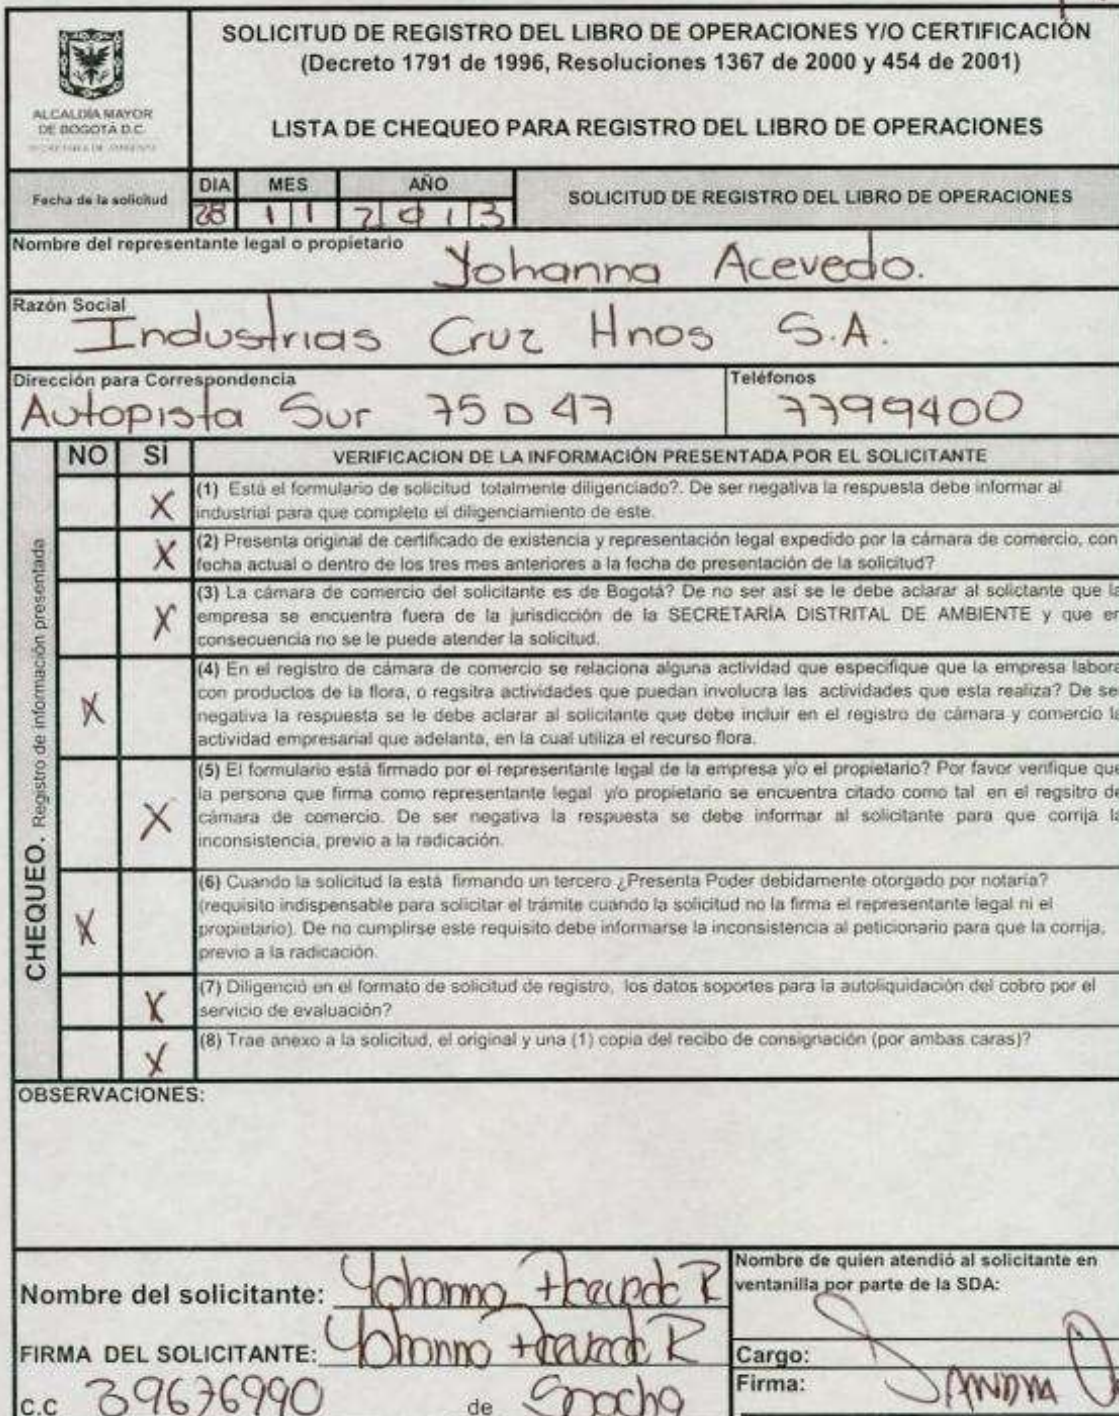 SOLICITUD DE REGISTRO DEL LIBRO DE OPERACIONES Y/O CERTIFICACIÓN
(Decreto 1791 de 1996, Resoluciones 1367 de 2000 y 454 de 2001)
ALCALDÍA MAYOR
DE BOGOTÁ D.C.
LISTA DE CHEQUEO PARA REGISTRO DEL LIBRO DE OPERACIONES
Fecha de la solicitud
DIA MES AÑO
28 11 2013
SOLICITUD DE REGISTRO DEL LIBRO DE OPERACIONES
Nombre del representante legal o propietario
Yohanna Acevedo.
Razón Social
Industrias Cruz Hnos S.A.
Dirección para Correspondencia
Autopista Sur 75 D 47
Teléfonos
7799400
CHEQUEO. Registro de información presentada
NO SI VERIFICACION DE LA INFORMACIÓN PRESENTADA POR EL SOLICITANTE
X (1) Está el formulario de solicitud totalmente diligenciado?. De ser negativa la respuesta debe informar al
industrial para que complete el diligenciamiento de este.
X (2) Presenta original de certificado de existencia y representación legal expedido por la cámara de comercio, con
fecha actual o dentro de los tres mes anteriores a la fecha de presentación de la solicitud?
X (3) La cámara de comercio del solicitante es de Bogotá? De no ser así se le debe aclarar al solictante que la
empresa se encuentra fuera de la jurisdicción de la SECRETARÍA DISTRITAL DE AMBIENTE y que en
consecuencia no se le puede atender la solicitud.
X (4) En el registro de cámara de comercio se relaciona alguna actividad que especifique que la empresa labora
con productos de la flora, o regsitra actividades que puedan involucra las actividades que esta realiza? De se
negativa la respuesta se le debe aclarar al solicitante que debe incluir en el registro de cámara y comercio la
actividad empresarial que adelanta, en la cual utiliza el recurso flora.
X (5) El formulario está firmado por el representante legal de la empresa y/o el propietario? Por favor verifique que
la persona que firma como representante legal y/o propietario se encuentra citado como tal en el regsitro de
cámara de comercio. De ser negativa la respuesta se debe informar al solicitante para que corrija la
inconsistencia, previo a la radicación.
X (6) Cuando la solicitud la está firmando un tercero ¿Presenta Poder debidamente otorgado por notaría?
(requisito indispensable para solicitar el trámite cuando la solicitud no la firma el representante legal ni el
propietario). De no cumplirse este requisito debe informarse la inconsistencia al peticionario para que la corrija,
previo a la radicación.
X (7) Diligenció en el formato de solicitud de registro, los datos soportes para la autoliquidación del cobro por el
servicio de evaluación?
X (8) Trae anexo a la solicitud, el original y una (1) copia del recibo de consignación (por ambas caras)?
OBSERVACIONES:
Nombre del solicitante: Yohanna Acevedo R
FIRMA DEL SOLICITANTE: Yohanna Acevedo R
c.c 39676990 de Soacha
Nombre de quien atendió al solicitante en
ventanilla por parte de la SDA:
Cargo:
Firma: SANDRA